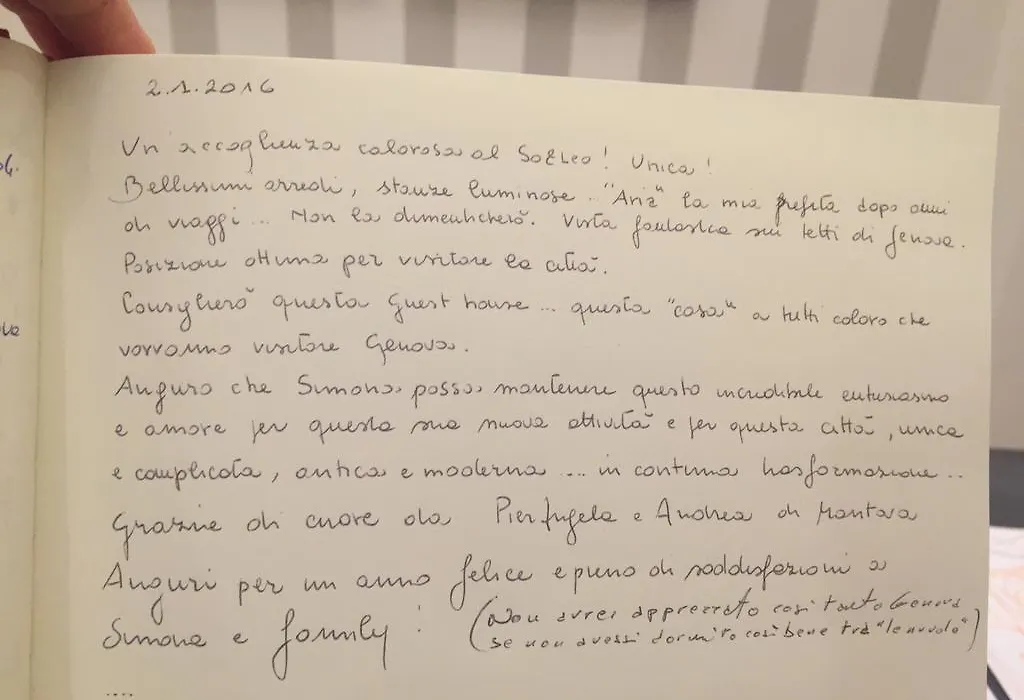 2.1.2016
Un'accoglienza calorosa al SoLeo! Unica!
Bellissimi arredi, stanze luminose.. "Aria" la mia preferita dopo anni
di viaggi... Non la dimenticherò. Vista fantastica sui tetti di Genova.
Posizione ottima per visitare la città.
Consiglierò questa Guest house... questa "casa" a tutti coloro che
vorranno visitare Genova.
Auguro che Simona possa mantenere questo incredibile entusiasmo
e amore per questa sua nuova attività e per questa città, unica
e complicata, antica e moderna ... in continua trasformazione..
Grazie di cuore da Pierangela e Andrea di Mantova
Auguri per un anno felice e pieno di soddisfazioni a
Simona e family!
(Non avrei apprezzato così tanto Genova
se non avessi dormito così bene tra "le nuvole")
....